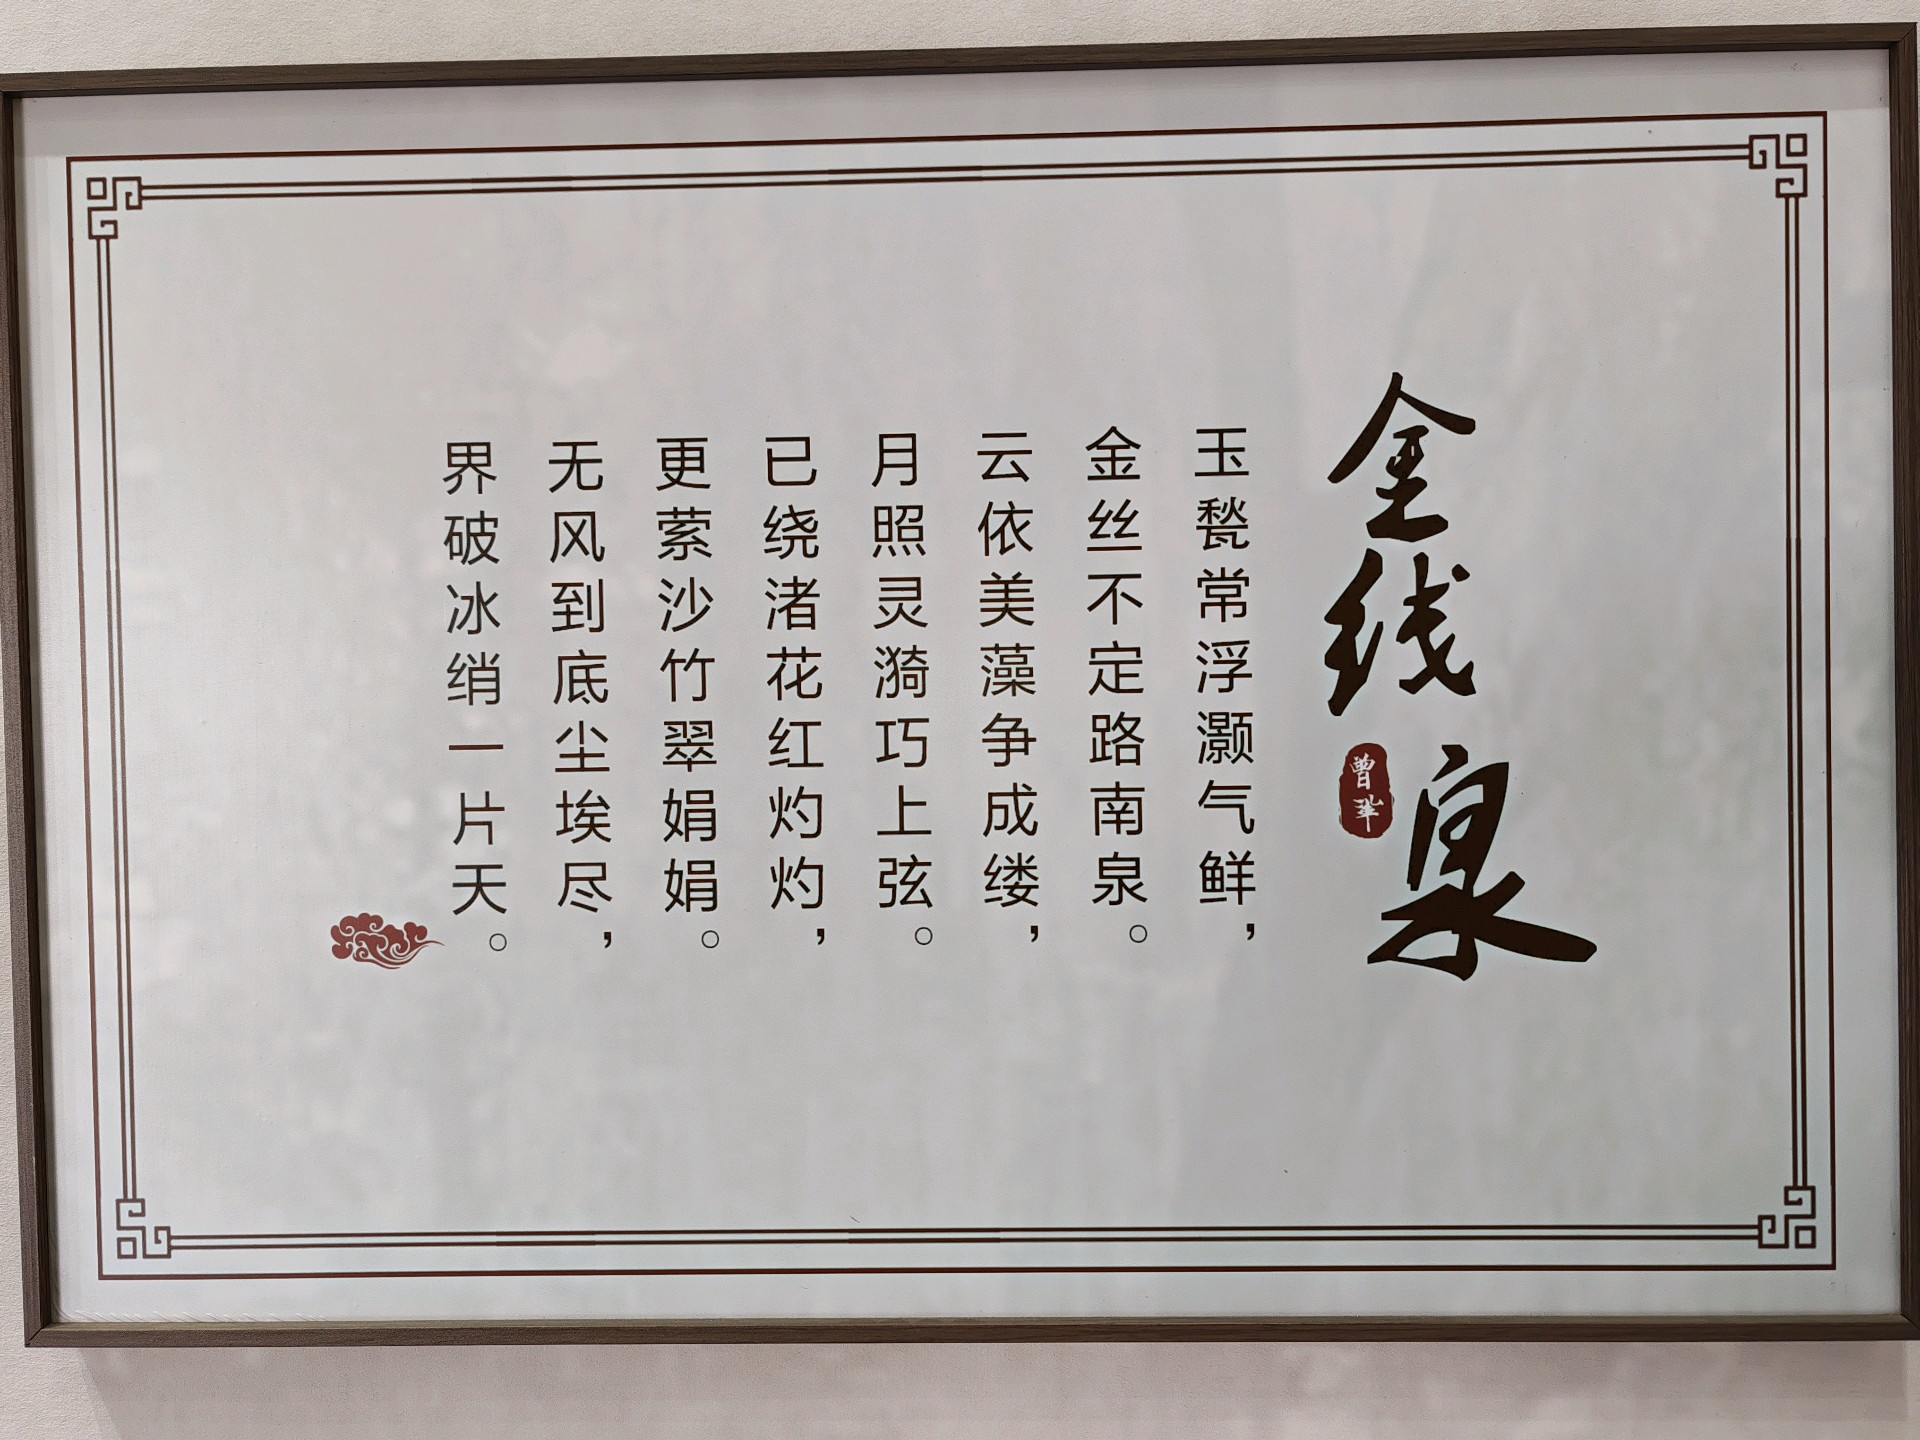 金线泉
曾巩
玉甃常浮灏气鲜，
金丝不定路南泉。
云依美藻争成缕，
月照灵漪巧上弦。
已绕渚花红灼灼，
更萦沙竹翠娟娟。
无风到底尘埃尽，
界破冰绡一片天。